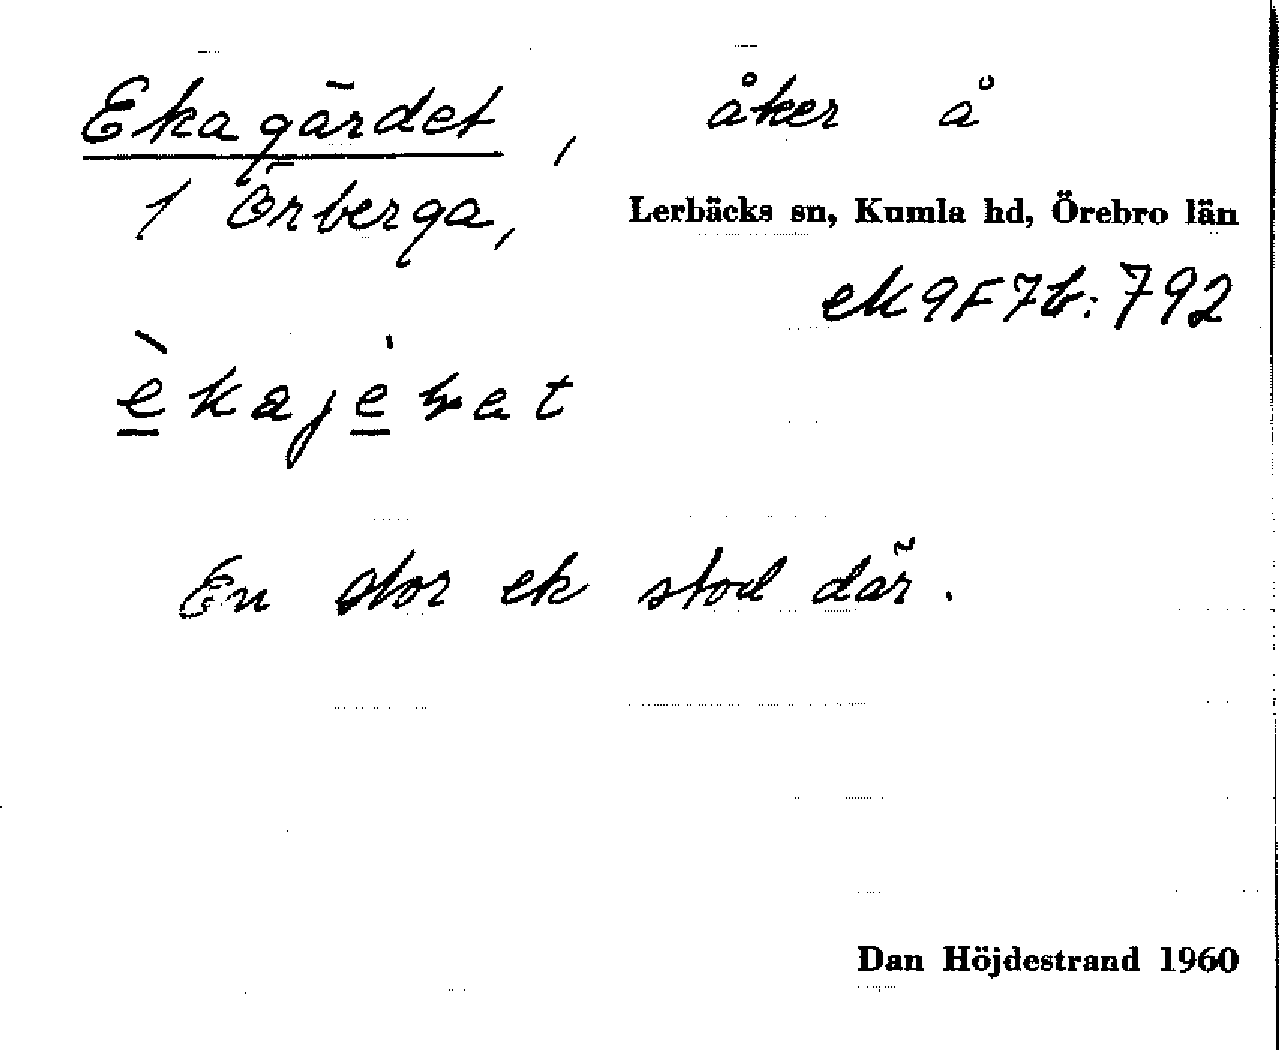 Ekagärdet, åker å
1 Örberga, Lerbäcks sn, Kumla hd, Örebro län
ek 9F7b:792
En stor ek stod där.
Dan Höjdestrand 1960